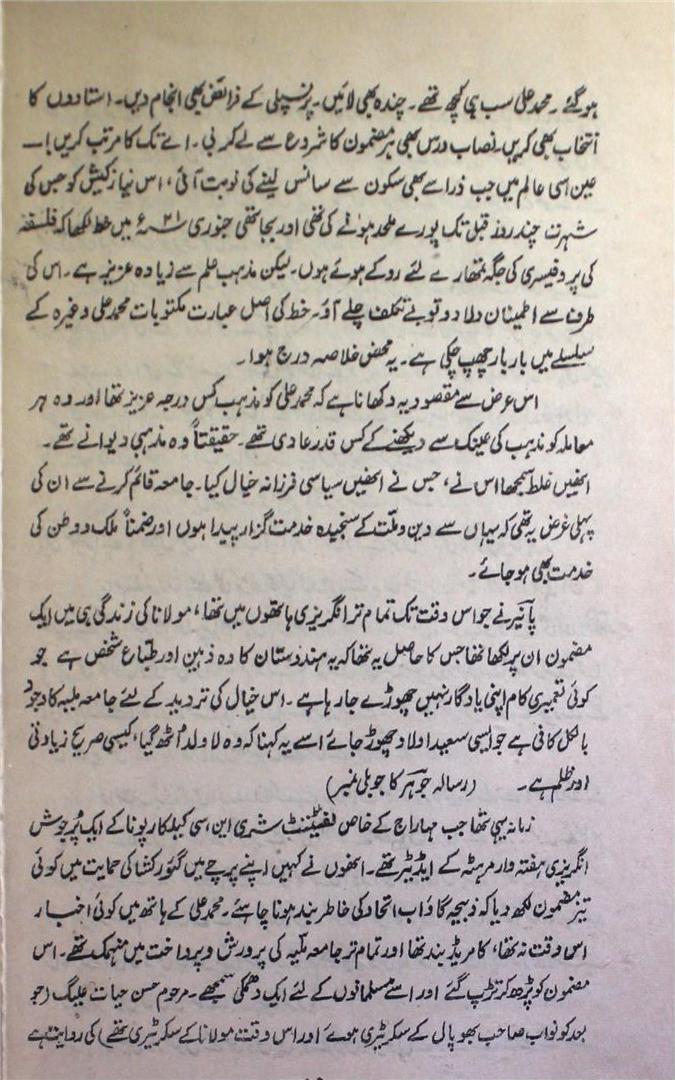 ہو گئے۔ محمد علی سب ہی کچھ تھے۔ چندہ بھی لائیں۔ پرنسپلی کے فرائض بھی انجام دیں۔ استادوں کا
انتخاب بھی کریں۔ نصاب درس بھی ہر مضمون کا شروع سے لے کر بی۔ اے تک کا مرتب کریں!—
عین اسی عالم میں جب ذرا سے بھی سکون سے سانس لینے کی نوبت آئی، اس نیاز کیش کو جس کی
شہرت چند روز قبل تک پورے ملحد ہونے کی تھی اور بجا تھی جنوری ۲۱ء میں خط لکھا کہ فلسفہ
کی پروفیسری کی جگہ تمھارے لئے روکے ہوئے ہوں۔ لیکن مذہب علم سے زیادہ عزیز ہے۔ اس کی
طرف سے اطمینان دلا دو تو بے تکلف چلے آؤ۔ خط کی اصل عبارت مکتوبات محمد علی وغیرہ کے
سلسلے میں بار بار چھپ چکی ہے۔ یہ محض خلاصہ درج ہوا۔
اس عرض سے مقصود یہ دکھانا ہے کہ محمد علی کو مذہب کس درجہ عزیز تھا اور وہ ہر
معاملہ کو مذہب کی عینک سے دیکھنے کے کس قدر عادی تھے۔ حقیقتاً وہ مذہبی دیوانے تھے۔
انھیں غلط سمجھا اس نے، جس نے انھیں سیاسی فرزانہ خیال کیا۔ جامعہ قائم کرنے سے ان کی
پہلی غرض یہ تھی کہ یہاں سے دین و ملت کے سنجیدہ خدمت گزار پیدا ہوں اور ضمناً ملک و وطن کی
خدمت بھی ہو جائے۔
پانیر نے جو اس وقت تک تمام تر انگریزی ہاتھوں میں تھا، مولانا کی زندگی ہی میں ایک
مضمون ان پر لکھا تھا جس کا حاصل یہ تھا کہ یہ ہندوستان کا وہ ذہین اور طباع شخص ہے جو
کوئی تعمیری کام اپنی یادگار نہیں چھوڑے جا رہا ہے۔ اس خیال کی تردید کے لئے جامعہ ملیہ کا وجود
بالکل کافی ہے جو ایسی سعید اولاد چھوڑ جائے اسے یہ کہنا کہ وہ لا ولد اُٹھ گیا، کیسی صریح زیادتی
اور ظلم ہے۔ (رسالہ جوہر کا جوبلی نمبر)
زمانہ یہی تھا جب مہاراج کے خاص لفٹیننٹ شری این، سی کیلکار پونا کے ایک پُرجوش
انگریزی ہفتہ وار مرہٹہ کے ایڈیٹر تھے۔ انھوں نے کہیں اپنے پرچے میں گئو رکشا کی حمایت میں کوئی
تیز مضمون لکھ دیا کہ ذبیحہ گاؤ اب اتحاد کی خاطر بند ہونا چاہئے۔ محمد علی کے ہاتھ میں کوئی اخبار
اس وقت نہ تھا، کامریڈ بند تھا اور تمام تر جامعہ ملیہ کی پرورش و پرداخت میں منہمک تھے۔ اس
مضمون کو پڑھ کر تڑپ گئے اور اسے مسلمانوں کے لئے ایک دھمکی سمجھے۔ مرحوم حسن حیات علیگ (جو
بعد کو نواب صاحب بھوپال کے سکریٹری ہوے اور اس وقت مولانا کے سکریٹری تھے) کی روایت ہے